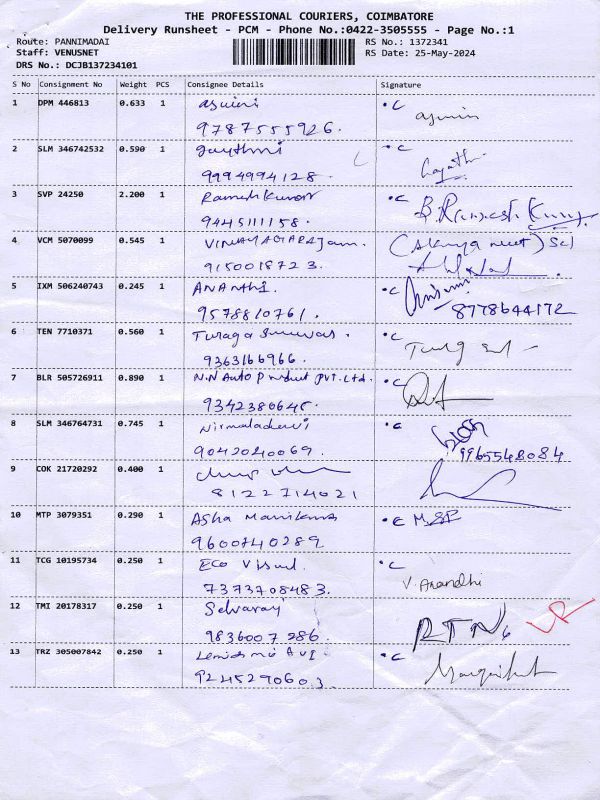 THE PROFESSIONAL COURIERS, COIMBATORE
Delivery Runsheet - PCM - Phone No.:0422-3505555 - Page No.:1
Route: PANNIMADAI RS No.: 1372341
Staff: VENUSNET RS Date: 25-May-2024
DRS No.: DCJB137234101
S No Consignment No Weight PCS Consignee Details Signature
1 DPM 446813 0.633 1 aswini • C
9787555926.
2 SLM 346742532 0.590 1 gayathri • C
9994994128.
3 SVP 24250 2.200 1 Rameshkumar • C
9445111158.
4 VCM 5070099 0.545 1 VINAYAGARAJam.
9150018723.
5 IXM 506240743 0.245 1 ANANThi. • C
9578810761. 8778644172
6 TEN 7710371 0.560 1 Turaga • C
9363166966.
7 BLR 505726911 0.890 1 N.N Auto Product Pvt.Ltd. • C
9342380645.
8 SLM 346764731 0.745 1 Nirmaladevi • C
9042040069. 9965548084
9 COK 21720292 0.400 1
8122714021
10 MTP 3079351 0.290 1 Asha Manikma • C
9600740289
11 TCG 10195734 0.250 1 Eco Visul. • C
7373708483. V. Anandhi
12 TMI 20178317 0.250 1 Selvaray
9836007986. RTN
13 TRZ 305007842 0.250 1 • C
9245290603.